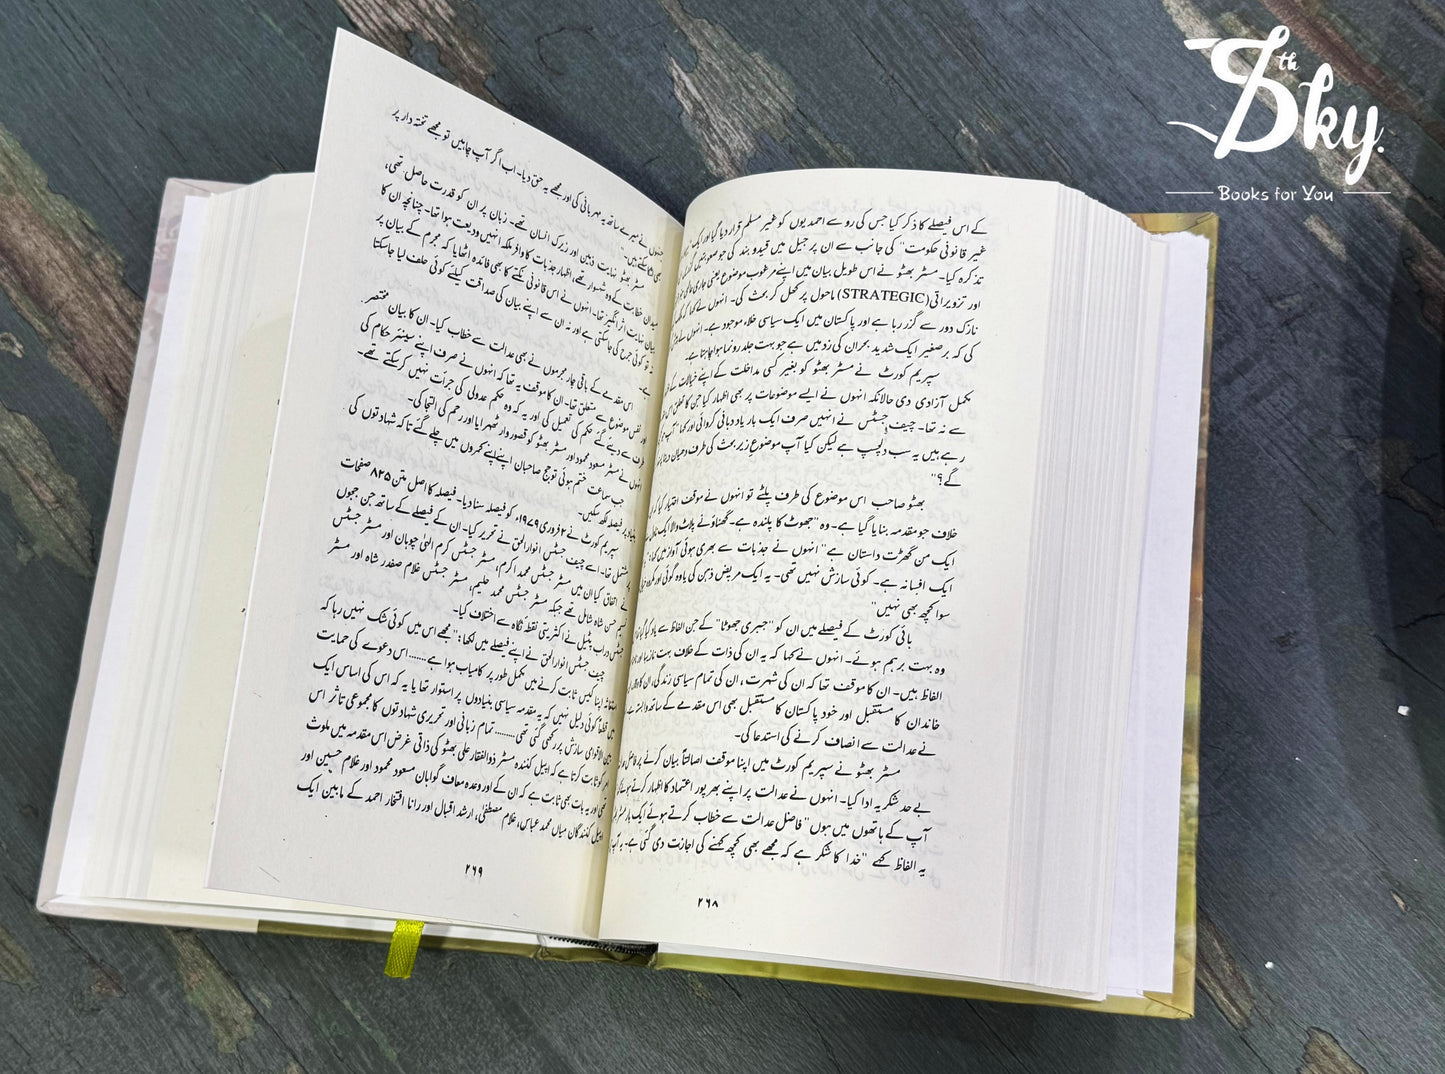 کے اس فیصلے کا ذکر کیا جس کی رو سے احمدیوں کو غیر مسلم قرار دیا گیا اور ایک
غیر قانونی حکومت" کی جانب سے ان پر جیل میں قید و بند کی جو صعوبتیں
تذکرہ کیا۔ مسٹر بھٹو نے اس طویل بیان میں اپنے مرغوب موضوع یعنی جاری عالمی
اور تزویراتی (STRATEGIC) ماحول پر کھل کر بحث کی۔ انہوں نے کہا کہ
نازک دور سے گزر رہا ہے اور پاکستان میں ایک سیاسی خلاء موجود ہے۔ انہوں نے
کی کہ برصغیر ایک شدید بحران کی زد میں ہے جو بہت جلد رونما ہوا چاہتا ہے۔
سپریم کورٹ نے مسٹر بھٹو کو بغیر کسی مداخلت کے اپنے خیالات کے
مکمل آزادی دی حالانکہ انہوں نے ایسے موضوعات پر بھی اظہار کیا جن کا تعلق اس
سے نہ تھا۔ چیف جسٹس نے انہیں صرف ایک بار یاد دہانی کروائی اور کہا "آپ
رہے ہیں یہ سب دلچسپ ہے لیکن کیا آپ موضوع زیر بحث کی طرف دھیان دینا
گے؟"
بھٹو صاحب اس موضوع کی طرف پلٹے تو انہوں نے موقف اختیار کیا کہ ان
خلاف جو مقدمہ بنایا گیا ہے۔ وہ "جھوٹ کا پلندہ ہے۔ گھناؤنے پلاٹ والا ایک
ایک من گھڑت داستان ہے" انہوں نے جذبات سے بھری ہوئی آواز میں کہا،
ایک افسانہ ہے۔ کوئی سازش نہیں تھی۔ یہ ایک مریض ذہن کی یاوہ گوئی اور
سوا کچھ بھی نہیں"
ہائی کورٹ کے فیصلے میں ان کو "جبری جھوٹا" کے جن الفاظ سے یاد کیا گیا
وہ بہت برہم ہوئے۔ انہوں نے کہا کہ یہ ان کی ذات کے خلاف بہت نازیبا اور
الفاظ ہیں۔ ان کا موقف تھا کہ ان کی شہرت، ان کی تمام سیاسی زندگی، ان کا
خاندان کا مستقبل اور خود پاکستان کا مستقبل بھی اس مقدمے کے ساتھ وابستہ ہے
نے عدالت سے انصاف کرنے کی استدعا کی۔
مسٹر بھٹو نے سپریم کورٹ میں اپنا موقف اصالتاً بیان کرنے پر فاضل
بے حد شکریہ ادا کیا۔ انہوں نے عدالت پر اپنے بھرپور اعتماد کا اظہار کرتے ہوئے
آپ کے ہاتھوں میں ہوں" فاضل عدالت سے خطاب کرتے ہوئے ایک بار مسٹر
یہ الفاظ کہے "خدا کا شکر ہے کہ مجھے بھی کچھ کہنے کی اجازت دی گئی ہے۔ یہ آپ
۲۶۸
جنہوں نے میرے ساتھ یہ مہربانی کی اور مجھے یہ حق دیا۔ اب اگر آپ چاہیں تو مجھے تختہ دار پر
بھی لٹکا سکتے ہیں۔"
مسٹر بھٹو نہایت ذہین اور زیرک انسان تھے۔ زبان پر ان کو قدرت حاصل تھی،
میدان خطابت کے وہ شہسوار تھے، اظہار جذبات کا وافر ملکہ انہیں ودیعت ہوا تھا۔ چنانچہ ان کا
بیان نہایت اثر انگیز تھا۔ انہوں نے اس قانونی نکتے کا بھی فائدہ اٹھایا کہ مجرم کے بیان پر
نہ تو کوئی جرح کی جاسکتی ہے اور نہ ان سے اپنے بیان کی صداقت کیلئے کوئی حلف لیا جاسکتا
ہے۔
اس مقدمے کے باقی چار مجرموں نے بھی عدالت سے خطاب کیا۔ ان کا بیان مختصر
اور نفس موضوع سے متعلق تھا۔ ان کا موقف یہ تھا کہ انہوں نے صرف اپنے سینئر حکام کی
طرف سے دیئے گئے حکم کی تعمیل کی اور یہ کہ وہ حکم عدولی کی جرأت نہیں کرسکتے تھے۔
انہوں نے مسٹر مسعود محمود اور مسٹر بھٹو کو قصور وار ٹھہرایا اور رحم کی التجا کی۔
جب سماعت ختم ہوئی تو جج صاحبان اپنے اپنے کمروں میں چلے گئے تاکہ شہادتوں کی
بنیاد پر فیصلہ لکھ سکیں۔
سپریم کورٹ نے ۲ فروری ۱۹۷۹ء کو فیصلہ سنا دیا۔ فیصلہ کا اصل متن ۸۲۵ صفحات
پر مشتمل تھا۔ اسے چیف جسٹس انوارالحق نے تحریر کیا۔ ان کے فیصلے کے ساتھ جن ججوں
نے اتفاق کیا ان میں مسٹر جسٹس محمد اکرم، مسٹر جسٹس کرم الٰہی چوہان اور مسٹر جسٹس
نسیم حسن شاہ شامل تھے جبکہ مسٹر جسٹس محمد حلیم، مسٹر جسٹس غلام صفدر شاہ اور مسٹر
جسٹس دراب پٹیل نے اکثریتی نقطہ نگاہ سے اختلاف کیا۔
چیف جسٹس انوارالحق نے اپنے فیصلے میں لکھا: "مجھے اس میں کوئی شک نہیں رہا کہ
استغاثہ اپنا کیس ثابت کرنے میں مکمل طور پر کامیاب ہوا ہے...... اس دعوے کی حمایت
میں قطعاً کوئی دلیل نہیں کہ یہ مقدمہ سیاسی بنیادوں پر استوار تھا یا یہ کہ اس کی اساس ایک
بین الاقوامی سازش پر رکھی گئی تھی....... تمام زبانی اور تحریری شہادتوں کا مجموعی تاثر اس
امر کو ثابت کرتا ہے کہ اپیل کنندہ مسٹر ذوالفقار علی بھٹو کی ذاتی غرض اس مقدمہ میں ملوث
تھی اور یہ بات بھی ثابت ہے کہ ان کے اور وعدہ معاف گواہان مسعود محمود اور غلام حسین اور
اپیل کنندگان میاں محمد عباس، غلام مصطفیٰ، ارشد اقبال اور رانا افتخار احمد کے مابین ایک
۲۶۹
Sky th
Books for You